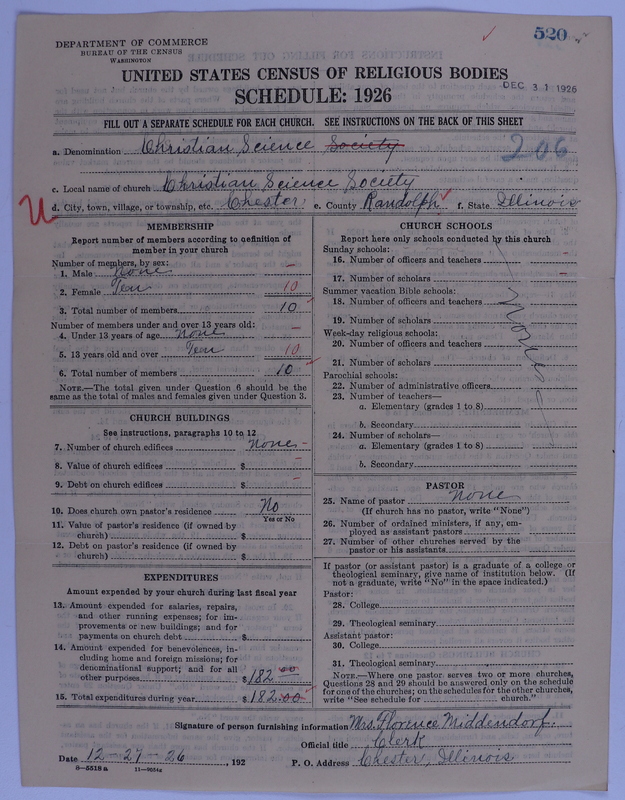 520
DEPARTMENT OF COMMERCE
BUREAU OF THE CENSUS
WASHINGTON
UNITED STATES CENSUS OF RELIGIOUS BODIES
DEC 31 1926
SCHEDULE: 1926
FILL OUT A SEPARATE SCHEDULE FOR EACH CHURCH. SEE INSTRUCTIONS ON THE BACK OF THIS SHEET
a. Denomination Christian Science Society
206
c. Local name of church Christian Science Society
U d. City, town, village, or township, etc. Chester e. County Randolph f. State Illinois
MEMBERSHIP
Report number of members according to definition of
member in your church
Number of members, by sex:
1. Male None –
2. Female Ten 10
3. Total number of members 10
Number of members under and over 13 years old:
4. Under 13 years of age none –
5. 13 years old and over Ten 10
6. Total number of members 10
NOTE.—The total given under Question 6 should be the
same as the total of males and females given under Question 3.
CHURCH BUILDINGS
See instructions, paragraphs 10 to 12
7. Number of church edifices none –
8. Value of church edifices $ –
9. Debt on church edifices $ –
10. Does church own pastor's residence No
Yes or No
11. Value of pastor's residence (if owned by
church) $
12. Debt on pastor's residence (if owned by
church) $
EXPENDITURES
Amount expended by your church during last fiscal year
13. Amount expended for salaries, repairs,
and other running expenses; for im-
provements or new buildings; and for
payments on church debt $
14. Amount expended for benevolences, in-
cluding home and foreign missions; for
denominational support; and for all
other purposes $ 182 00
15. Total expenditures during year $ 182.00
CHURCH SCHOOLS
Report here only schools conducted by this church
Sunday schools:
16. Number of officers and teachers –
17. Number of scholars –
Summer vacation Bible schools:
18. Number of officers and teachers
19. Number of scholars
Week-day religious schools:
20. Number of officers and teachers
21. Number of scholars
Parochial schools:
22. Number of administrative officers
23. Number of teachers—
a. Elementary (grades 1 to 8)
b. Secondary
24. Number of scholars—
a. Elementary (grades 1 to 8)
b. Secondary
None
PASTOR
25. Name of pastor none
(If church has no pastor, write "None")
26. Number of ordained ministers, if any, em-
ployed as assistant pastors
27. Number of other churches served by the
pastor or his assistants
If pastor (or assistant pastor) is a graduate of a college or
theological seminary, give name of institution below. (If
not a graduate, write "No" in the space indicated.)
Pastor:
28. College
29. Theological seminary
Assistant pastor:
30. College
31. Theological seminary
NOTE.—Where one pastor serves two or more churches,
Questions 28 and 29 should be answered only on the schedule
for one of the churches; on the schedules for the other churches,
write "See schedule for church."
Signature of person furnishing information Mrs. Florence Middendorf
Official title Clerk
Date 12-27-26, 192 P. O. Address Chester, Illinois
8-5518a 11-9034